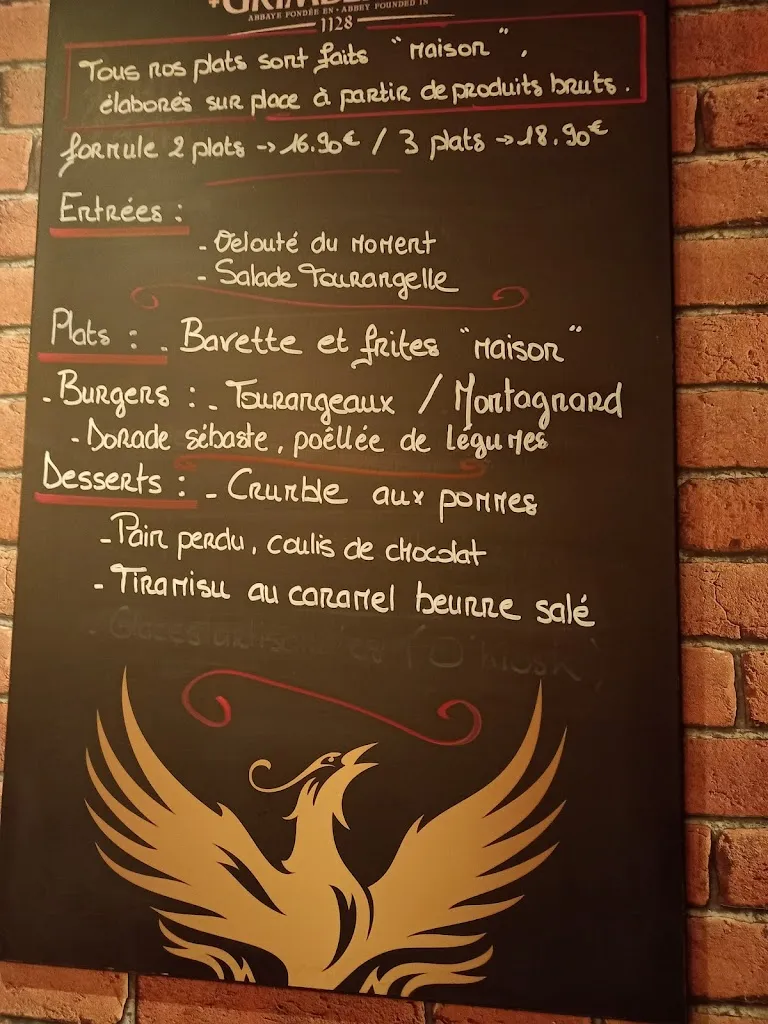 ABBAYE FONDÉE EN · ABBEY FOUNDED IN
1128
Tous nos plats sont faits "maison",
élaborés sur place à partir de produits bruts.
formule 2 plats → 16.90€ / 3 plats → 18.90€
Entrées :
- Velouté du moment
- Salade Tourangelle
Plats : - Bavette et frites "maison"
- Burgers : - Tourangeaux / Montagnard
- Dorade sébaste, poêllée de légumes
Desserts : - Crumble aux pommes
- Pain perdu, coulis de chocolat
- Tiramisu au caramel beurre salé